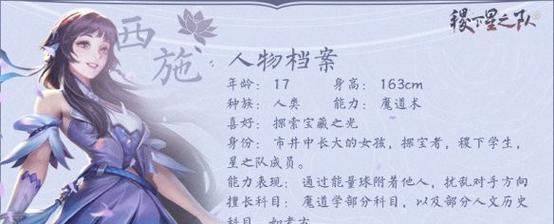 西施
稷下星之队
人物档案
年龄： 17 身高： 163cm
种族： 人类 能力： 魔道术
喜好： 探索宝藏之光
身份： 市井中长大的女孩，探宝者，稷下学生，
星之队成员。
能力表现： 通过能量球附着他人，扰乱对手方向
擅长科目： 魔道学部分科目，以及部分人文历史
科目，如考古